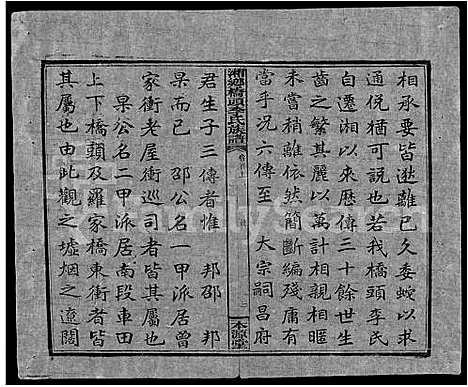 相承要皆遐離已久委蛇以求
通悅猶可說也若我橋頭李氏
自遷湘以來歷傳三十餘世生
齒之繁其麗以萬計相親相暱
未嘗稍離依然簡斷編殘庸有
當乎況六傳至　大宗嗣昌府
湘鄉橋頭李氏族譜
本源堂
君生子三傳者惟　邦邵　邦
杲而已　邵公名一甲派居曾
家衝老屋衝巡司者皆其屬也
杲公名二甲派居南段車田
上下橋頭及羅家橋東衝者皆
其屬也由此觀之墟烟之遼闊